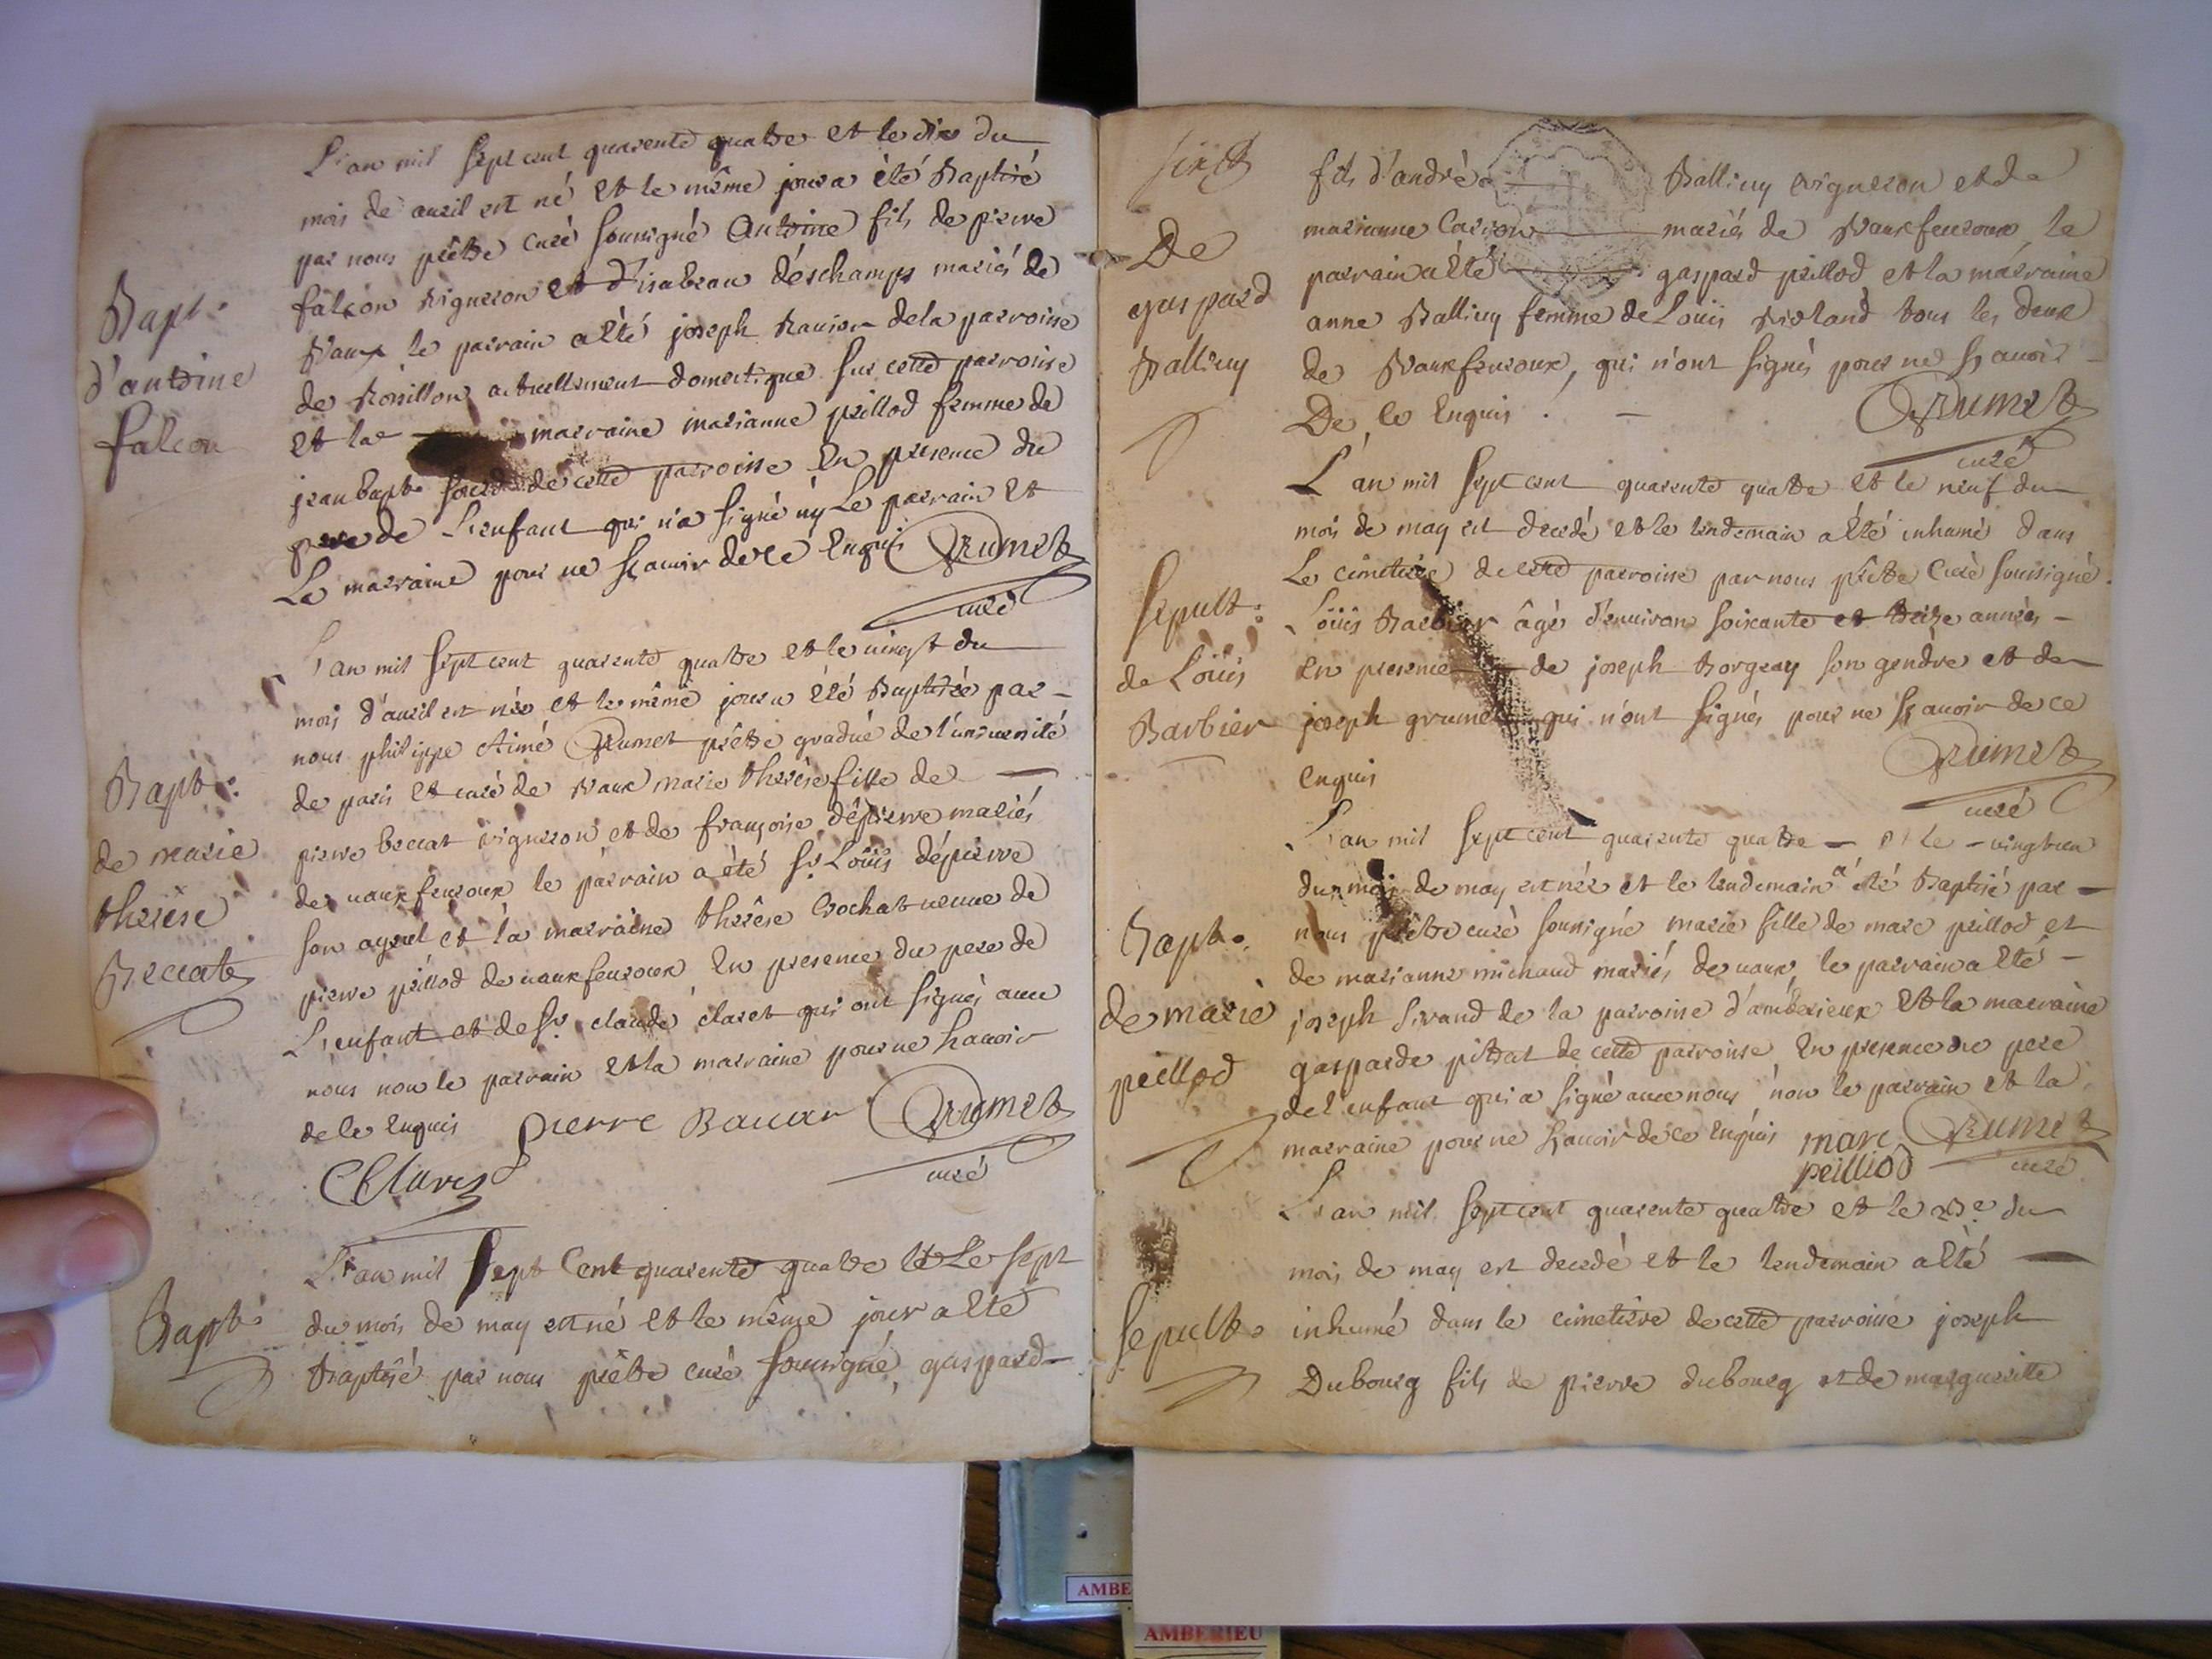 L'an mil sept cent quarente quattre et le dix du
mois de auril est né et le même jour a été Baptisé
par nous prêttre curé soussigné Antoine fils de pierre
falcon vigneron et d'isabeau déschamps mariés de
Vaux le parrain a été joseph Ravier de la parroisse
de Rossillon actuellement domestique sur cette parroisse
et la marraine marianne peillod femme de
jean bapte de cette parroisse En presence du
pere de L'enfant qui n'a signé ny Le parrain Et
La marraine pour ne sçauoir de ce Enquis Grumet
curé
Bapt.
d'antoine
falcon
L'an mil sept cent quarente quattre et le vingt du
mois d'auril est née et le même jour a été Baptisée par
nous philippe Aimé Grumet prêttre gradué de l'université
de paris et curé de Vaux marie thérèse fille de
pierre beccat vigneron et de françoise dépierre mariés
de vauxfeuroux le parrain a été sr. Loüis dépierre
son ayeul et la marraine thérèse Crochat veuve de
pierre peillod de vauxfeuroux En presence du pere de
L'enfant et de sr. claude claret qui ont signés avec
nous non le parrain et la marraine pour ne scauoir
de ce Enquis Pierre Baccar Grumet
Claret curé
Bapt:
de marie
thérèse
Beccat
L'an mil sept Cent quarente quattre et Le sept
du mois de may est né et le même jour a été
Baptisé par nous prêttre curé soussigné, gaspard
Bapt:
six
fils d'andré Balliuy vigneron et de
marianne Carron mariés de Vauxfeuroux, le
parrain a été gaspard peillod et la marraine
anne Balliuy femme de Louis tous les deux
de Vauxfeuroux, qui n'ont signés pour ne sçauoir
De Ce Enquis. Grumet
curé
De
gaspard
Balliuy
L'an mil sept cent quarente quattre et le neuf du
mois de may est decedé et le lendemain a été inhumé dans
Le cimetière de cette parroisse par nous prêttre Curé soussigné
Loüis Barbier âgé d'enuiron soixante et treize années
en presence de joseph Borgeay son gendre et de
joseph grumet qui n'ont signés pour ne sçauoir de ce
Enquis Grumet
curé
Sepult:
de Loüis
Barbier
L'an mil sept cent quarente quattre et le vingt un
du mois de may est née et le lendemain a été Baptisé par
nous prêttre curé soussigné marie fille de marc peillod et
de marianne michaud mariés de vaux, le parrain a été
joseph sirand de la parroisse d'ambérieux Et la marraine
gasparde pittrat de cette parroisse En presence du pere
de l'enfant qui a signé auec nous non le parrain et la
marraine pour ne sçauoir de ce Enquis marc Grumet
peilliod curé
Bapt.
de marie
peillod
L'an mil sept cent quarente quattre et le du
mois de may est decedé et le lendemain a été
inhumé dans le cimetière de cette parroisse joseph
Dubourg fils de pierre dubourg et de marguerite
Sepult.
AMBE
AMBERIEU